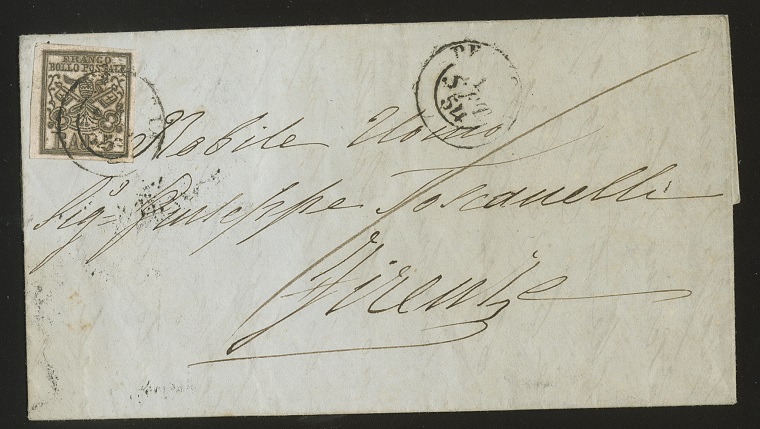 FRANCO
BOLLO POSTALE
BAI
54
Nobile Uomo
Sig.e Giuseppe Toscanelli
Firenze